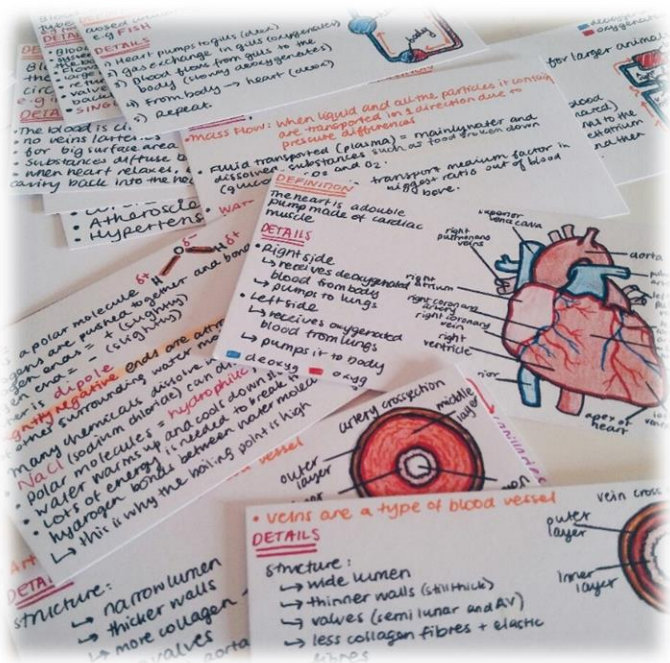 e.g FISH
DETAILS
1) Heart pumps to gills (deox)
2) gas exchange in gills (oxygenates)
3) Blood flows from gills to the
body (slowly deoxygenates)
4) From body → heart (deox)
5) Repeat.
body
oxygenates
for larger animals
DETAI
The blood is ci
• no veins /arteries
• for big surface area
• substances diffuse
• when heart relaxes,
cavity back into the hea
• Atheroscle
• Hypertens
• Mass flow: when liquid and all the particles it contain
are transported in 1 direction due to
pressure differences
• Fluid transported (plasma) = mainly water and
dissolved substances such as food broken down
(gluco
transport medium factor in
biggest ratio out of blood
bove.
DEFINITION
The heart is a double
pump made of cardiac
muscle
DETAILS
• Right side
↳ receives deoxygenated
blood from body
↳ pumps to lungs
• Left side
↳ receives oxygenated
blood from lungs
↳ pumps it to body
deoxyg
oxyg
superior
vena cava
right
pulmonary
veins
right
atrium
right coronary
artery
right coronary
vein
right
ventricle
rior
aorta
apex of
heart
O δ-
H δ+
δ+
H
a polar molecule
gens are pushed together and bond
ends = + (slightly)
end = - (slightly)
er is dipole
ightly negative ends are attr
other surrounding water mo
many chemicals dissolve
NaCl (sodium chloride) can di
• polar molecules = hydrophilic
• water warms up and cools down sl
• Lots of energy is needed to break
hydrogen bonds between water molec
↳ this is why the boiling point is high
vessel
artery crossection
middle
layer
outer
layer
DETAI
structure:
→ narrow lumen
→ thicker walls
→ more collagen
valves
aorta
• veins are a type of blood vessel
DETAILS
structure:
↳ wide lumen
↳ thinner walls (still thick)
↳ valves (semi lunar and AV)
↳ less collagen fibres + elastic
fibres
vein cross
outer
layer
inner
layer